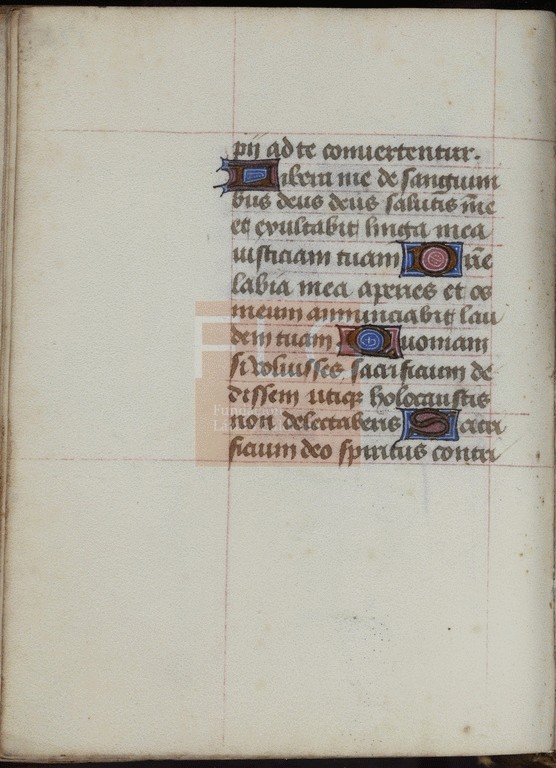 pij ad te conuertentur.
Libera me de sanguini
bus deus deus salutis m̄e
et exultabit linga mea
iusticiam tuam Dn̄e
labia mea aperies et os
meum annunciabit lau
dem tuam Quoniam
si voluisses sacrificium de
dissem utiqz holocaustis
non delectaberis Sacri
ficium deo spiritus contri
FLG
Fundación